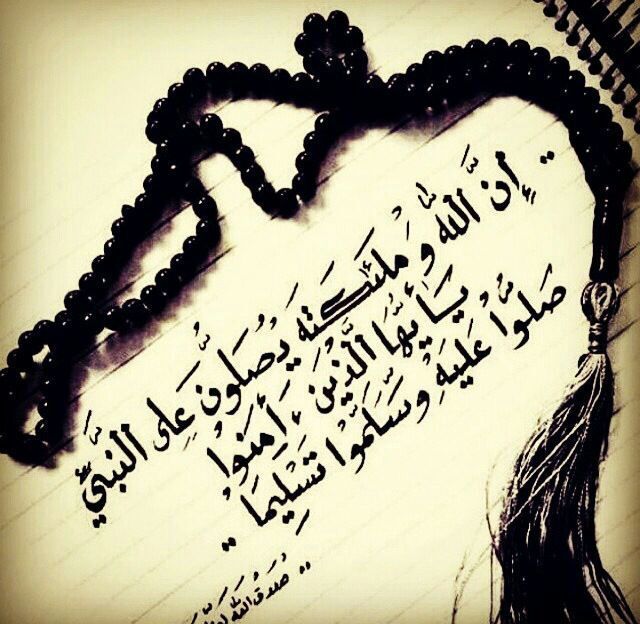 .. إنَّ اللَّه وَملئكته يُصَلُّونَ عَلى النَّبيِّ
يَـأيُّها الَّذينَ ءَأمنوا
صَلُّوا عَليهِ وسَلِّموا تَسْليما ..
.. صدق الله